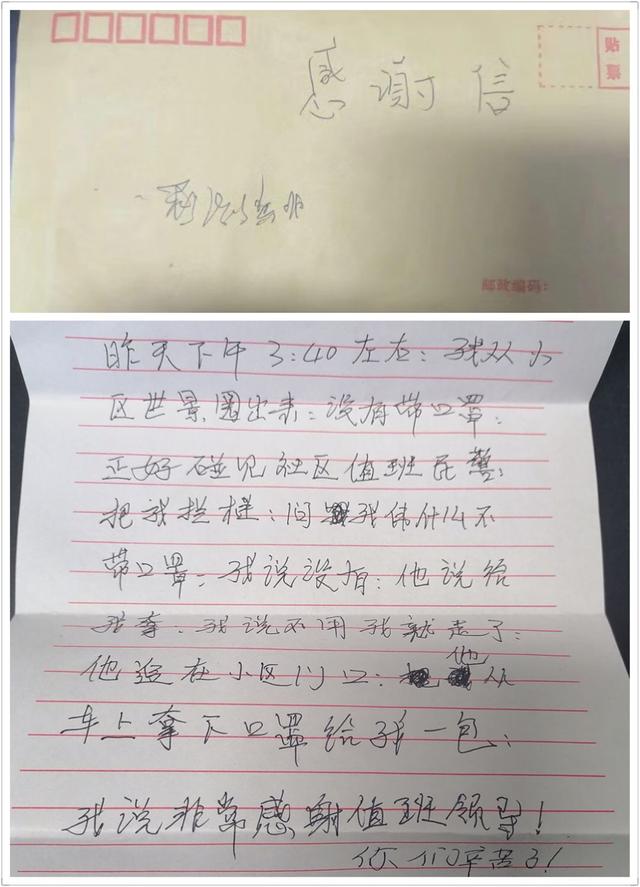 贴
票
感谢信
邮政编码：
昨天下午3:40左右：我从小
区世景园出来：没有带口罩：
正好碰见社区值班民警：
把我拦：问我伟什么不
带口罩：我说没有：他说给
我拿：我说不用我就走了：
他追在小区门口：他从
车上拿下口罩给我一包：
我说非常感谢值班领导！
你们辛苦了！